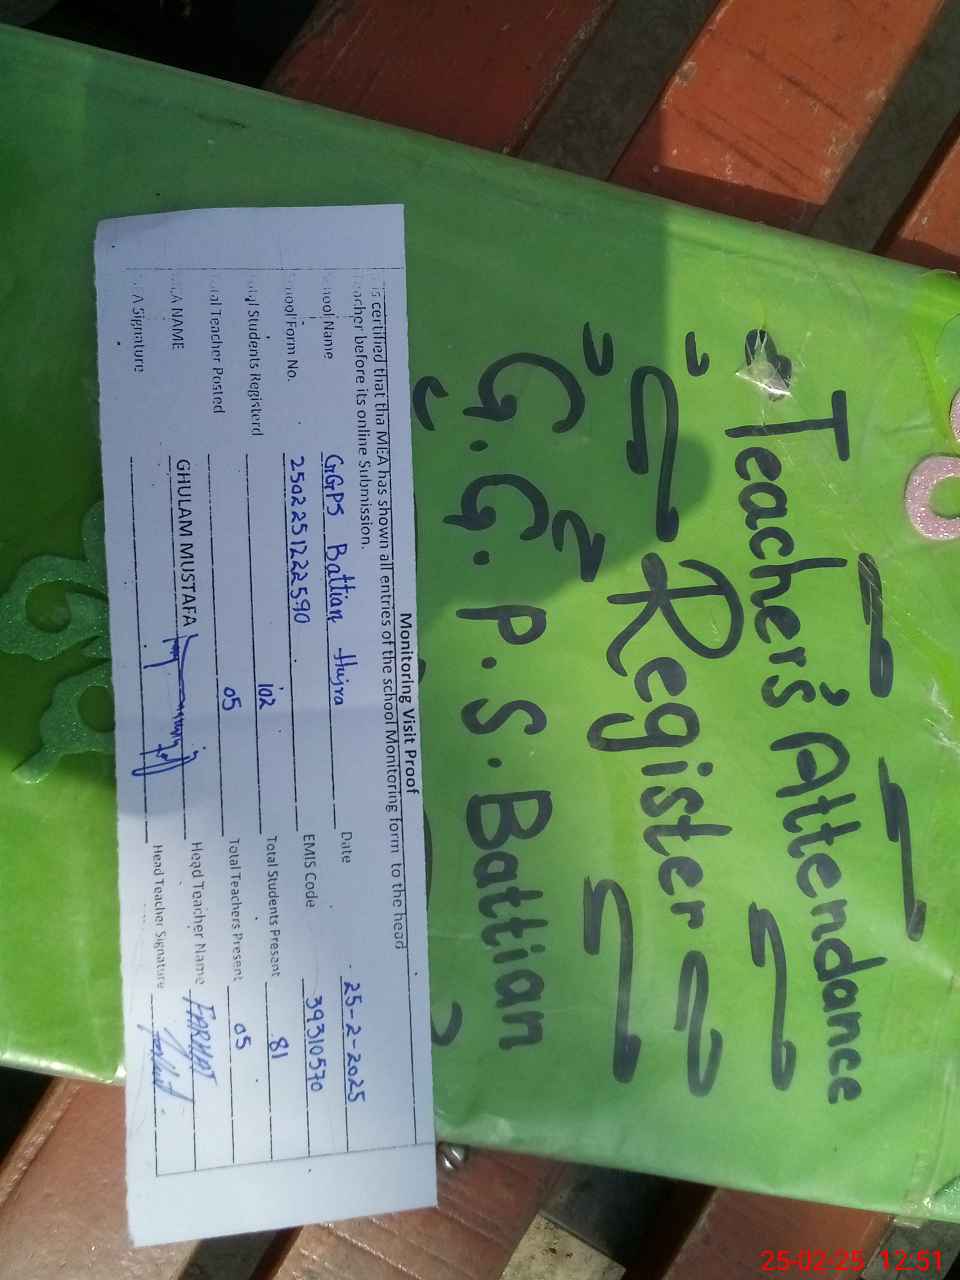 Teacher's Attendance
Register
G.G.P.S. Battian
Monitoring Visit Proof
is certified that tha MEA has shown all entries of the school Monitoring form to the head
eacher before its online Submission.
hool Name GGPS Battian Hujra Date 25-2-2025
hool Form No. 2502251222590 EMIS Code 39310570
otal Students Registerd 102 Total Students Present 81
otal Teacher Posted 05 Total Teachers Present 05
EA NAME GHULAM MUSTAFA Head Teacher Name FARHAT
EA Signature Head Teacher Signature
25-02-25 12:51